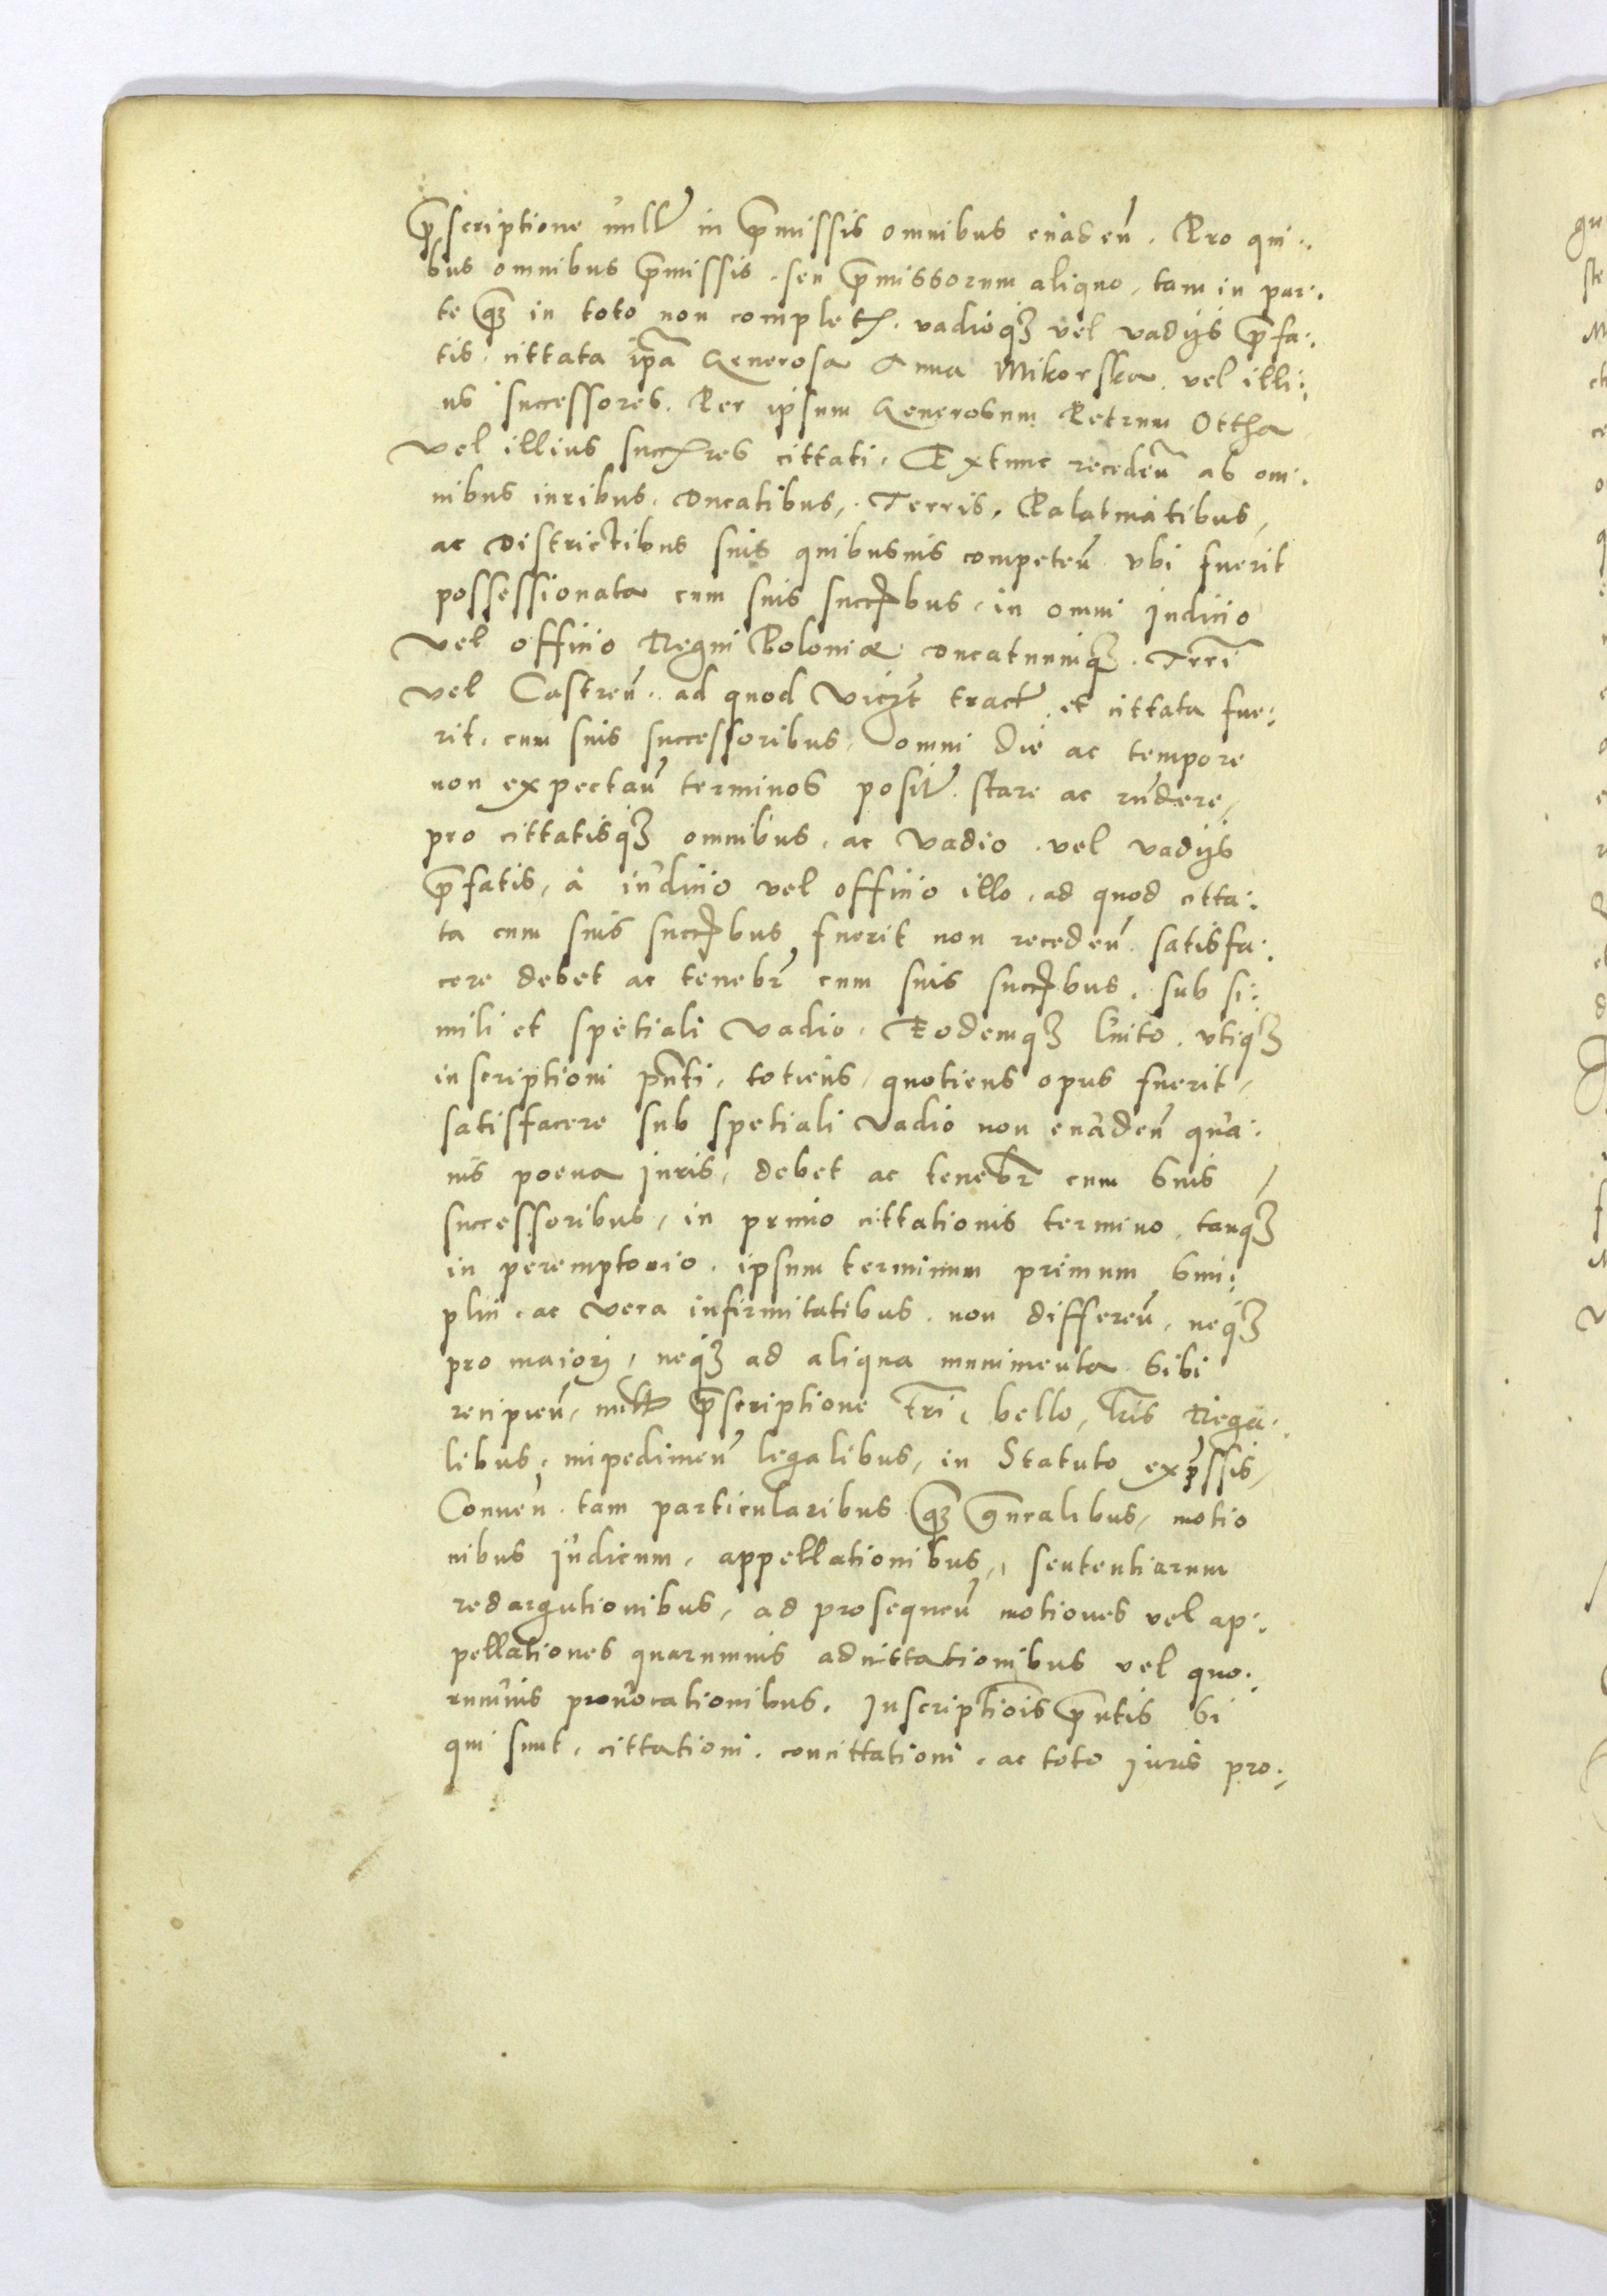 p̄scriptione null̃ in p̄missis omnibus euadeñ. Pro qui:
bus omnibus p̄missis. seu p̄missorum aliquo, tam in par:
te q̃ꝫ in toto non complet., vadioqꝫ vel vadijs p̄fa:
tis. cittata ip̃a Generosa Anna Mikorska. vel illi:
us successores. Per ipsum Generosum Petrum Ottha
vel illius succ̃res cittati. Extunc recedeñ ab om:
nibus iuribus, Ducatibus, Terris, Palatinatibus,
ac Districtibus suis quibusuis competeñ vbi fuerit
possessionata cum suis succ̃bus, in omni Judicio
vel officio Regni Poloniæ Ducatuumqꝫ. Terrĩ
vel Castreñ. ad quod vigt̃ tract̃ et cittata fue:
rit. cum suis successoribus, omni die ac tempore
non expectañ terminos posit̃. stare ac rñdere,
pro cittatisqꝫ omnibus, ac vadio vel vadijs
p̄fatis, à iudicio vel officio illo, ad quod citta:
ta cum suis succ̃bus fuerit non recedeñ. satisfa:
cere debet ac tenebr̃ cum suis succ̃bus, sub si:
mili et spetiali vadio. Eodemqꝫ luito. vtiqꝫ
inscriptioni pñti, totiens, quotiens opus fuerit,
satisfacere sub spetiali vadio non euadeñ qua:
uis poena Juris, debet ac tenebr̃ cum suis
successoribus, in primo cittationis termino, tanqꝫ
in peremptorio. ipsum terminum primum sim:
plici. ac vera infirmitatibus. non differeñ, neqꝫ
pro maiorj, neqꝫ ad aliqua munimenta sibi
recipieñ, null̃ p̄scriptione tr̃i, bello, l̃ris Rega:
libus, impedimeñ legalibus, in Statuto exp̄ssis,
Conueñ. tam particularibus q̃ꝫ gñralibus, motio
nibus Judicum, appellationibus, sententiarum
redargutionibus, ad prosequeñ motiones vel ap:
pellationes quarumuis adcittationibus vel quo:
rumuis prouocationibus. Inscriptiõis p̄ntis si
qui sunt, cittationi. concittationi. ac toto iuris pro: